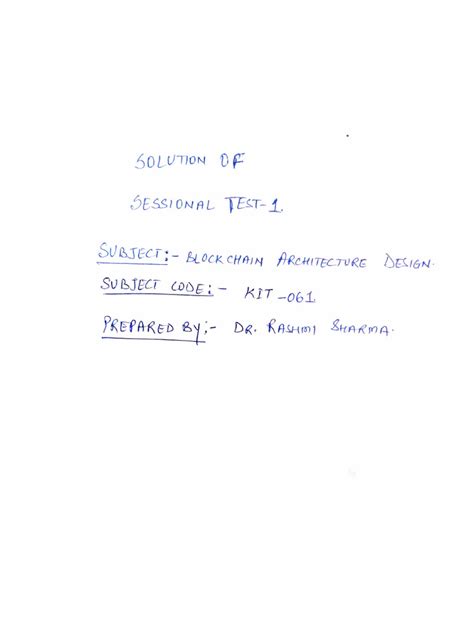 SOLUTION OF
SESSIONAL TEST-1
SUBJECT:- BLOCKCHAIN ARCHITECTURE DESIGN.
SUBJECT CODE:- KIT-061
PREPARED BY:- DR. RASHMI SHARMA.